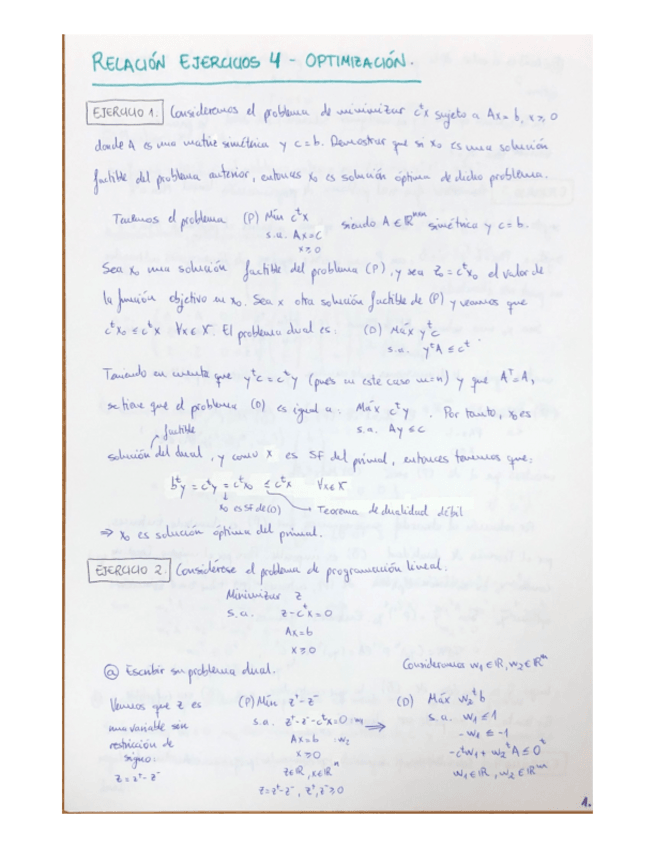 RELACIÓN EJERCICIOS 4 - OPTIMIZACIÓN.
EJERCICIO 1. Consideremos el problema de minimizar cᵗx sujeto a Ax=b, x≥0
donde A es una matriz simétrica y c=b. Demostrar que si x₀ es una solución
factible del problema anterior, entonces x₀ es solución óptima de dicho problema.
Tenemos el problema (P) Mín cᵗx siendo A∈ℝᵐˣᵐ simétrica y c=b.
s.a. Ax=c
x≥0
Sea x₀ una solución factible del problema (P), y sea z₀=cᵗx₀ el valor de
la función objetivo en x₀. Sea x otra solución factible de (P) y veamos que
cᵗx₀ ≤ cᵗx ∀x∈X. El problema dual es: (D) Máx yᵗc
s.a. yᵗA ≤ cᵗ
Teniendo en cuenta que yᵗc=cᵗy (pues en este caso m=n) y que Aᵀ=A,
se tiene que el problema (D) es igual a: Máx cᵗy . Por tanto, x₀ es
s.a. Ay≤c
factible
solución del dual, y como x es SF del primal, entonces tenemos que:
bᵗy = cᵗy = cᵗx₀ ≤ cᵗx ∀x∈X
x₀ es SF de (D) → Teorema de dualidad débil
⇒ x₀ es solución óptima del primal.
EJERCICIO 2. Considérese el problema de programación lineal.
Minimizar z
s.a. z-cᵗx=0
Ax=b
x≥0
ⓐ Escribir su problema dual. Consideramos w₁∈ℝ, w₂∈ℝᵐ
Vemos que z es
una variable sin
restricción de
signo:
z=z⁺-z⁻
(P) Mín z⁺-z⁻
s.a. z⁺-z⁻-cᵗx=0 :w₁ ⇒
Ax=b :w₂
x≥0
z∈ℝ, x∈ℝⁿ
z=z⁺-z⁻, z⁺,z⁻≥0
(D) Máx w₂ᵗb
s.a. w₁≤1
-w₁≤-1
-cᵗw₁+w₂ᵗA≤0ᵗ
w₁∈ℝ, w₂∈ℝᵐ
1.